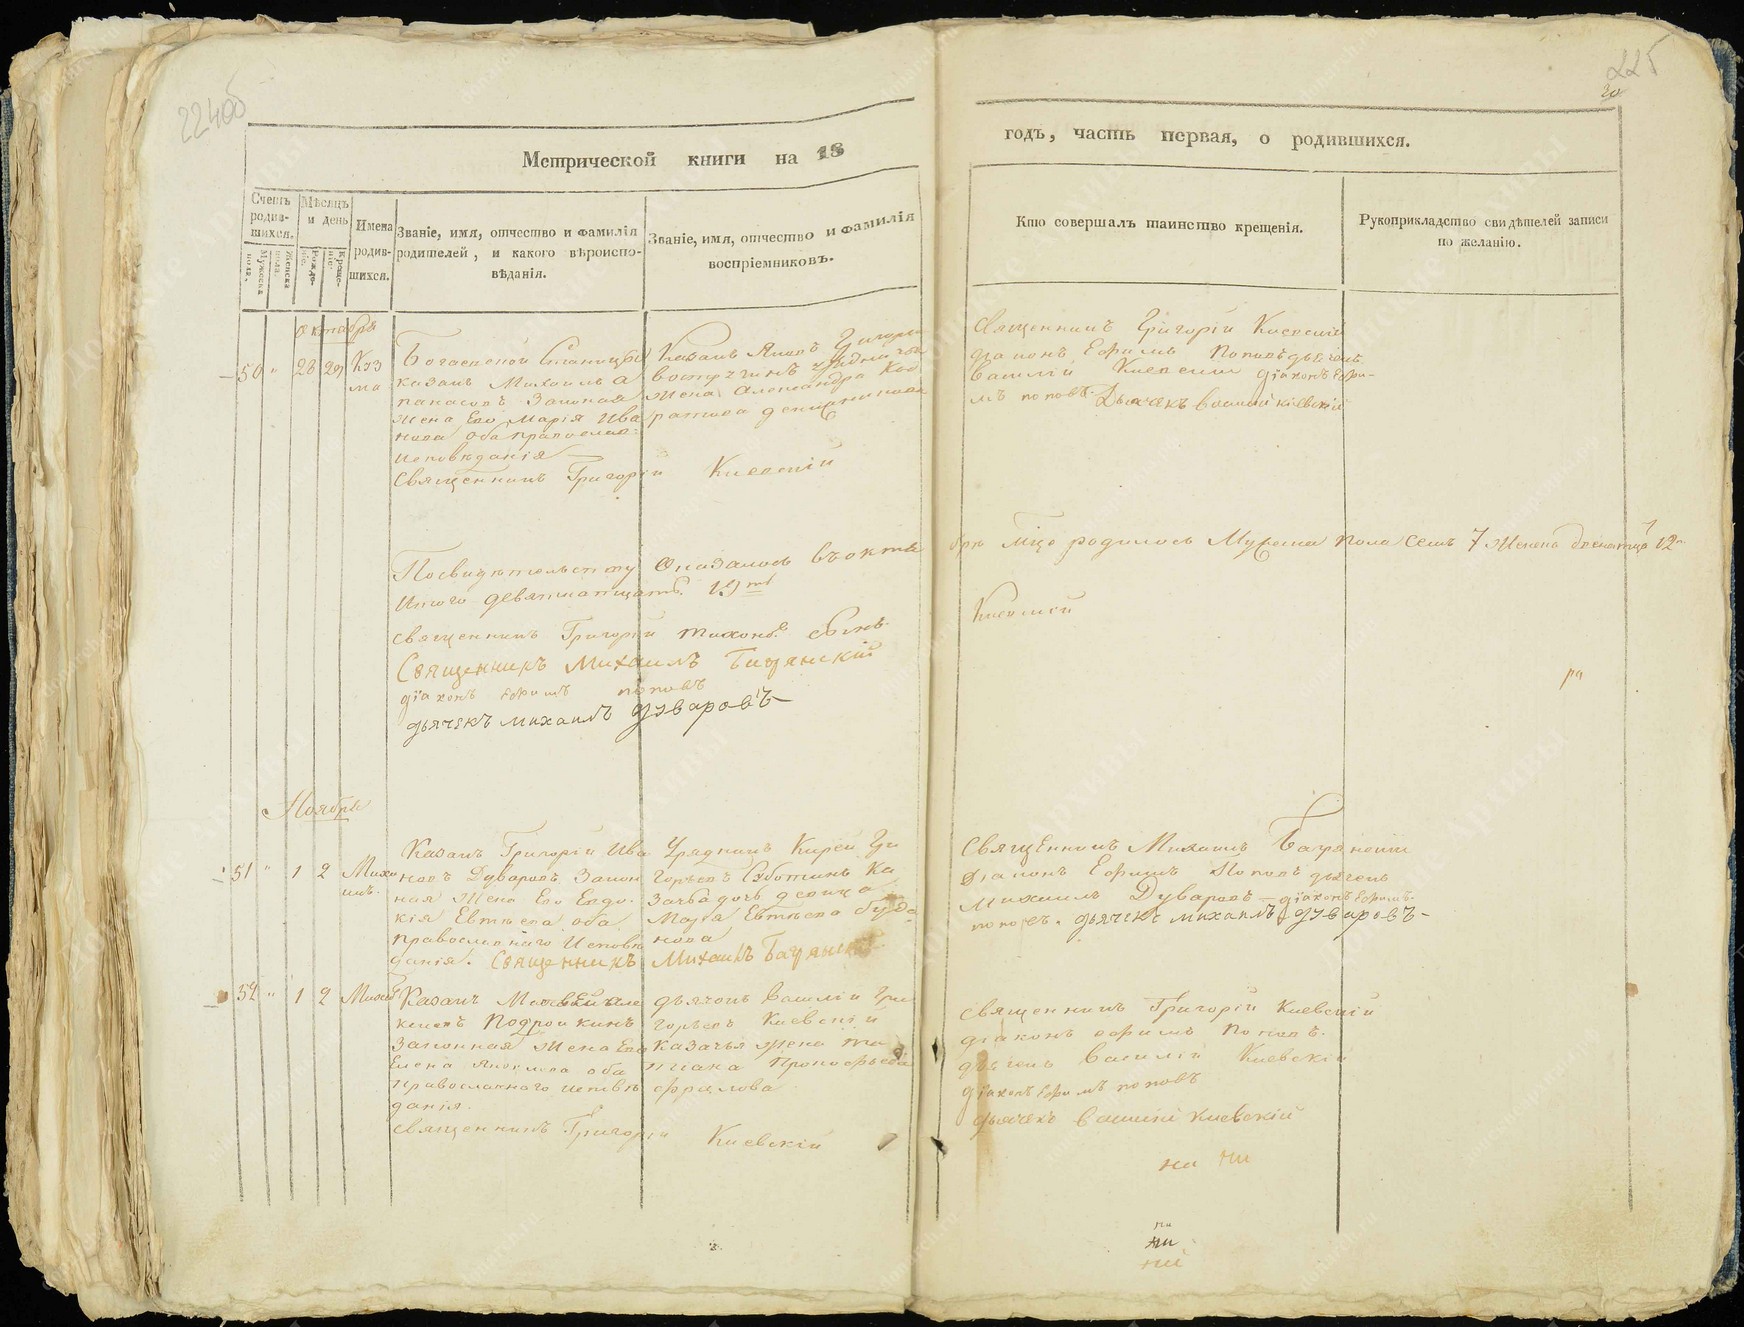 224об
225
Метрической книги на 18
годъ, часть первая, о родившихся.
Счетъ родив-
шихся.
Мужеска пола.
Женска пола.
Мѣсяцъ
и день
Рожде-
нiе.
Креще-
нiе.
Имена
родив-
шихся.
Званiе, имя, отчество и фамилiя
родителей, и какого вѣроиспо-
вѣданiя.
Званiе, имя, отчество и фамилiя
воспрiемниковъ.
Кто совершалъ таинство крещенiя.
Рукоприкладство свидѣтелей записи
по желанiю.
октября
50 " 28 29 Коз
ма
Богаевской Станицы
казакъ Михаилъ А
панасовъ Законная
жена Его Марiя Ива
нова оба православ:
исповѣданiя
Священникъ Григорiй Киевскiй
Казакъ Яковъ
жена Александра Кон
Священникъ Григорiй Киевскiй
дiаконъ Ефимъ Поповъ дьячекъ
Василiй Киевскiй дiаконъ Ефи-
мъ поповъ. Дьячекъ Василiй киевскiй
Посвидѣтельству Оказалось въ октя
брѣ Мцѣ родилось Мужеска пола семь 7 женска двенатцать 12
Итого девятнатцать 19
Священникъ Григорiй
Киевскiй
Священникъ Михаилъ Багрянскiй
дiаконъ Ефимъ поповъ
дьячекъ михаилъ дуваровъ
ра
Ноября
51 " 1 2 Миха
илъ.
Казакъ Григорiй Ива
новъ Дуваровъ Закон
ная жена Его Евдо-
кiя Евтѣева оба
православнаго исповѣ
данiя. Священникъ Михаилъ Багрянскiй
Урядникъ Кирей Гри
горьевъ Суботинъ Ка
зачья дочь девица
Марiя Евтѣева
нова
Священникъ Михаилъ Багрянскiй
Дiаконъ Ефимъ Поповъ дьячекъ
Михаилъ Дуваровъ - дiаконъ Ефимъ
поповъ. дьячекъ михаилъ дуваровъ -
52 " 1 2 Михаил
Казакъ Матвей Але
ксеевъ Подройкинъ
Законная жена Его
Елена Яковлева оба
Православнаго исповѣ
данiя.
Священникъ Григорiй Киевскiй
дьячокъ Василiй Гри
горьевъ Киевскiй
казачья жена та
тiана Прокофьева
фролова
Священникъ Григорiй Киевскiй
дiаконъ ефимъ Поповъ.
дьячекъ Василiй Киевскiй
дiаконъ Ефимъ поповъ
дьячекъ Василiй киевскiй
на ни
ни
ни
ни